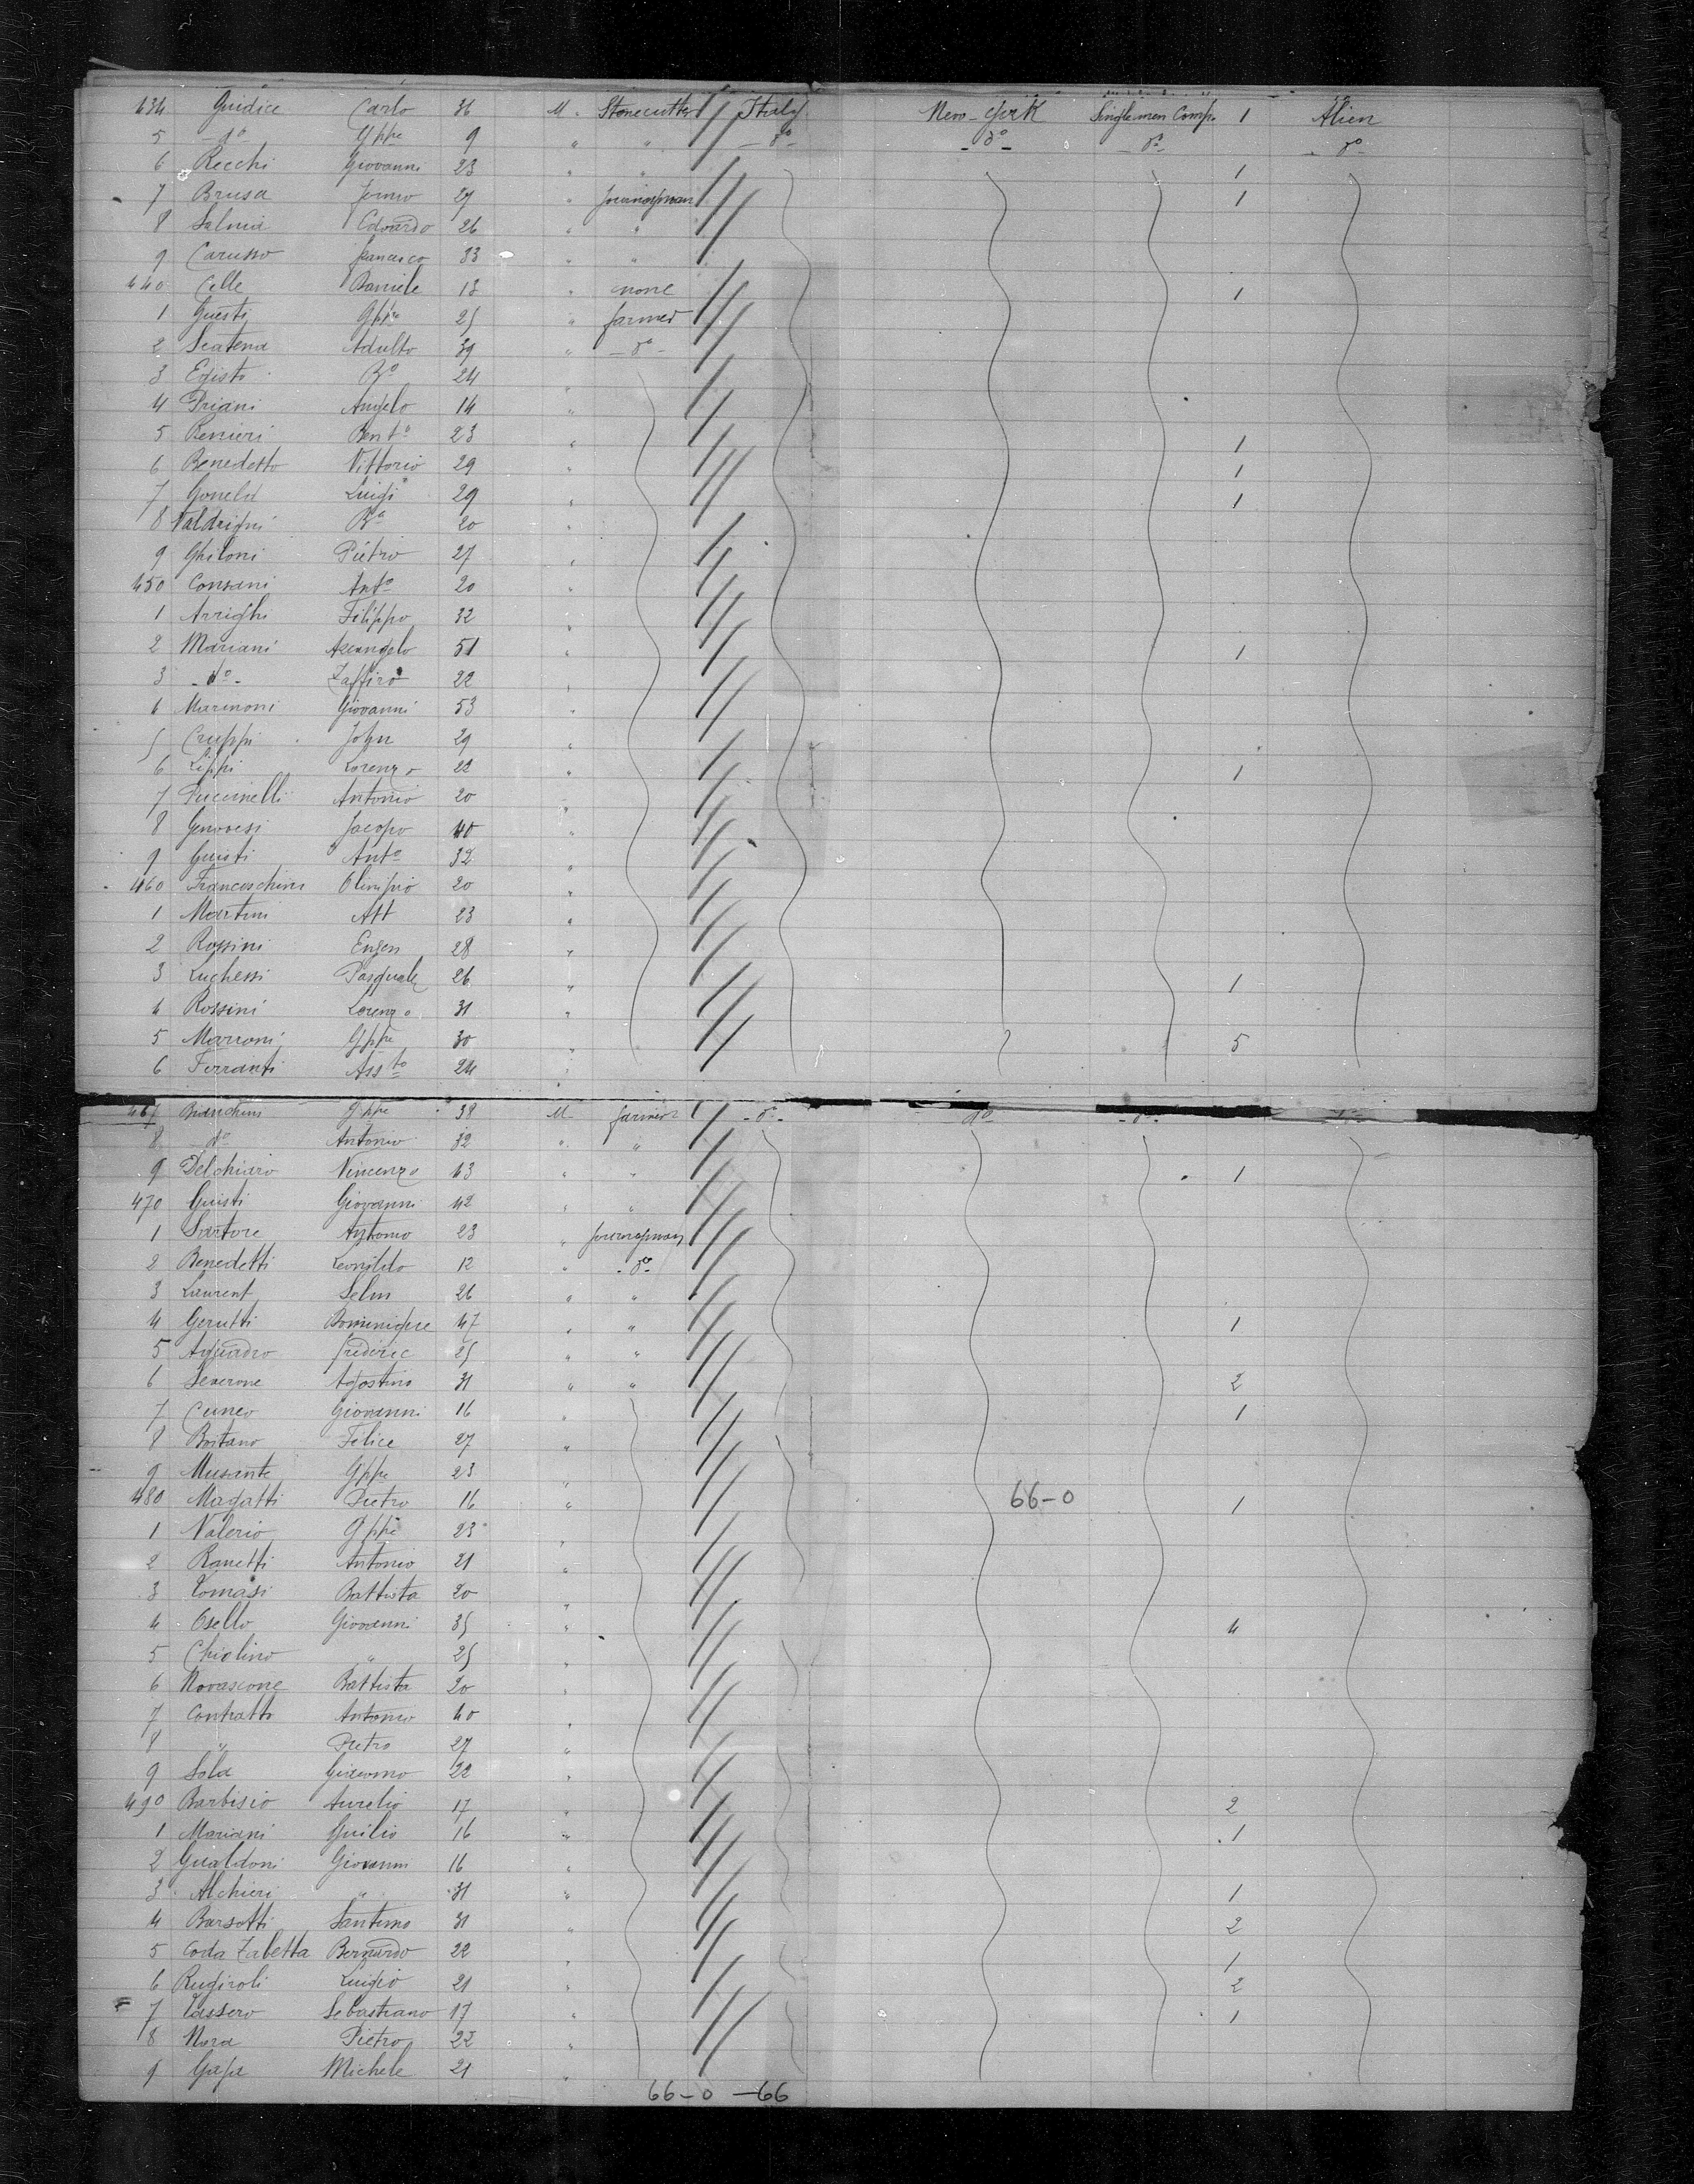 434 Guidice Carlo 36 M. Stonecutter Italy New-York Single men Comp. 1 Alien
5 -do- Gppe 9 " " -do- -do- -do- -do-
6 Recchi Giovanni 23 " " 1
7 Brusa 27 " journeyman 1
8 Salmia Edoardo 26 " "
9 Carusso francesco 33 " "
440 Celle Daniele 13 " none 1
1 Guisti Gppe 25 " farmer
2 Scatena Adulto 39 " -do-
3 Egisto Bo 24 "
4 Priani Angelo 14 "
5 Renieri Bento 23 " 1
6 Benedetto Vittorio 29 " 1
7 Gonela Luigi 29 " 1
8 Valdrighi Ba 20 "
9 Ghiloni Pietro 27 "
450 Consani Anto 20 "
1 Arrighi Filippo 32 "
2 Mariani Arcangelo 51 " 1
3 -do- Zaffiro 22 "
4 Marmoni Giovanni 53 "
5 Cruppi John 29 "
6 Lippi Lorenzo 22 " 1
7 Puccinelli Antonio 20 "
8 Genovesi Jacopo 40 "
9 Guisti Anto 32 "
460 Franceschini Olimpio 20 "
1 Martini Att 23 "
2 Rossini Eugen 28 "
3 Luchessi Pasquale 26 " 1
4 Rossini Lorenzo 31 "
5 Marroni Gppe 30 " 5
6 Ferranti Assto 24 "
467 Bianchini Gppe 39 M farmer -do- -do- -do- -do-
8 do Antonio 32 " "
9 Delchiaro Vincenzo 43 " " 1
470 Guisti Giovanni 42 " "
1 Sartore Antonio 23 " journeyman
2 Benedetti Leonildo 12 " -do-
3 Laurent Selm 26 " "
4 Gerutti Dominique 47 " " 1
5 Aquadro frederic 25 " "
6 Severone Agostino 31 " " 2
7 Cuneo Giovanni 16 " 1
8 Boitano Filice 27 "
9 Musante Gppe 23 "
480 Magatti Pietro 16 " 66-0 1
1 Valerio Gppe 23 "
2 Ranetti Antonio 21 "
3 Tomasi Battista 20 "
4 Osello Giovanni 35 " 4
5 Chiolino " 25 "
6 Novascone Battista 20 "
7 Contratto Antonio 40 "
8 " Pietro 27 "
9 Sola Giacomo 22 "
490 Barbisio Aurelio 17 " 2
1 Mariani Guilio 16 " 1
2 Gualdoni Giovanni 16 "
3 Alchieri " 31 " 1
4 Barsotti Santimo 31 " 2
5 Coda Zabetta Bernardo 22 " 1
6 Rugiroli Luigio 21 " 2
7 Vassero Sebastiano 17 " 1
8 Nora Pietro 22 "
9 Gapa Michele 21 "
66-0 -66